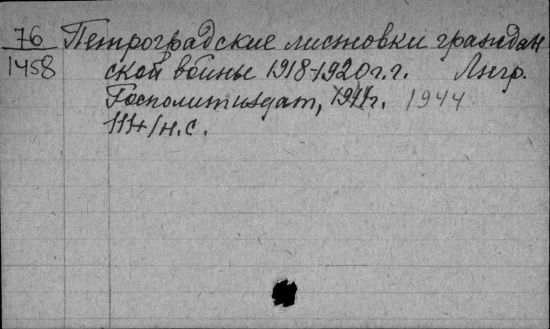 76 Петроградские листовки граждан
1458 ской войны 1918-1920 г.г. Лнгр.
Госполитиздат, 1941г. 1944
111+1 н.с.